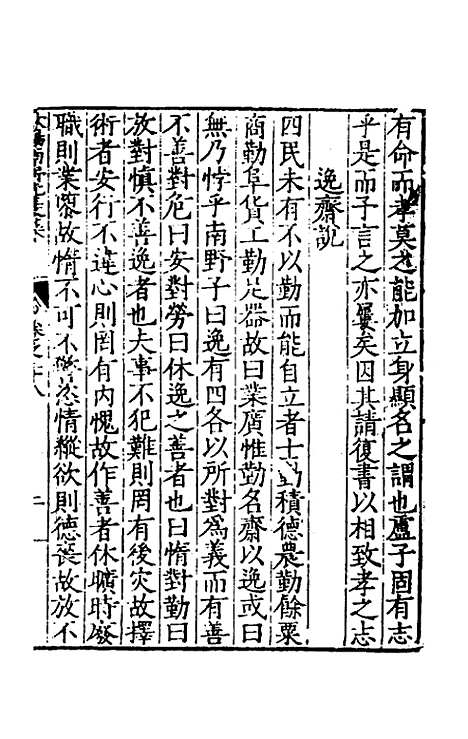 有命而孝莫之能加立身顯名之謂也盧子固有志
乎是而子言之亦屢矣因其請復書以相致孝之志
逸齋說
四民未有不以勤而能自立者士勤積德農勤餘粟
商勤阜貨工勤足器故曰業廣惟勤名齋以逸或曰
無乃悖乎南野子曰逸有四各以所對爲義而有善
不善對危曰安對勞曰休逸之善者也曰惰對勤曰
放對慎不善逸者也夫事不犯難則罔有後灾故擇
術者安行不違心則罔有內愧故作善者休曠時廢
職則業隳故惰不可不警忿情縱欲則德喪故放不